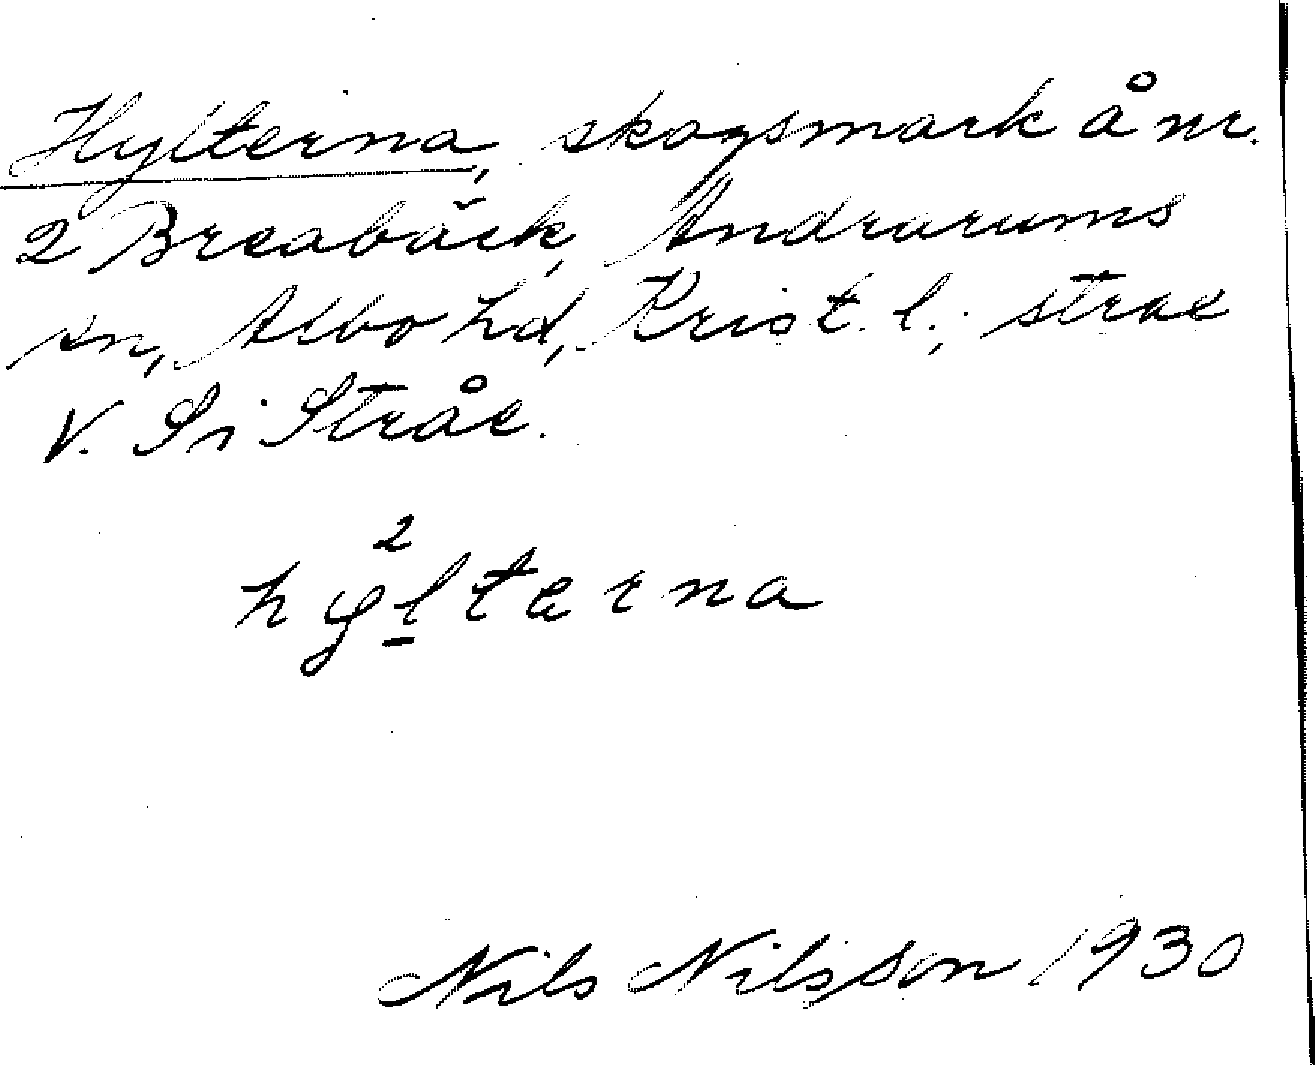 Hylterna, skogsmark å nr.
2 Breabäck, Andrarums
sn, Albo hd, Krist. l.; strax
V. Si Stråe.
hy²lterna
Nils Nilsson 1930